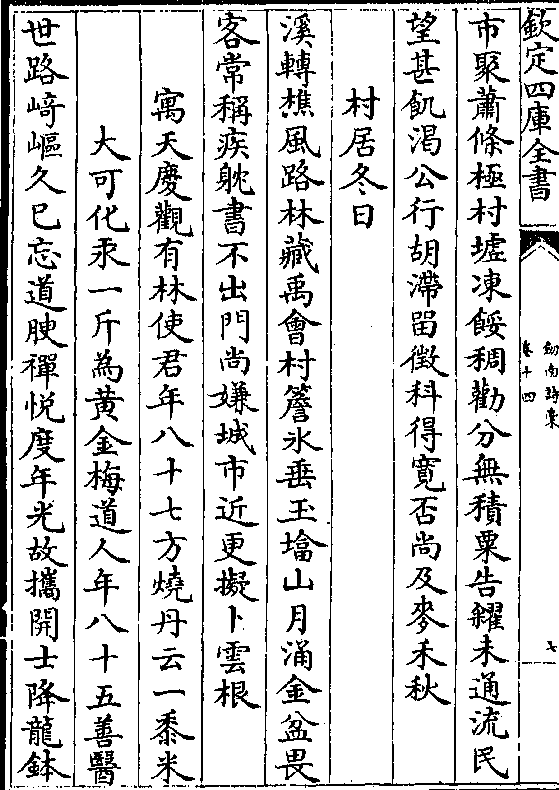 欽定四庫全書
劒南詩藁
卷十四
七
市聚蕭條極村墟凍餒稠勸分無積粟告糴未通流民
望甚飢渴公行胡滯留徴科得寛否尚及麥禾秋
村居冬日
溪轉樵風路林藏禹會村簷氷垂玉塔山月涌金盆畏
客常稱疾躭書不出門尚嫌城市近更擬卜雲根
寓天慶觀有林使君年八十七方燒丹云一黍米
大可化汞一斤為黄金梅道人年八十五善醫
世路﨑嶇久已忘道腴禪悦度年光故攜開士降龍鉢